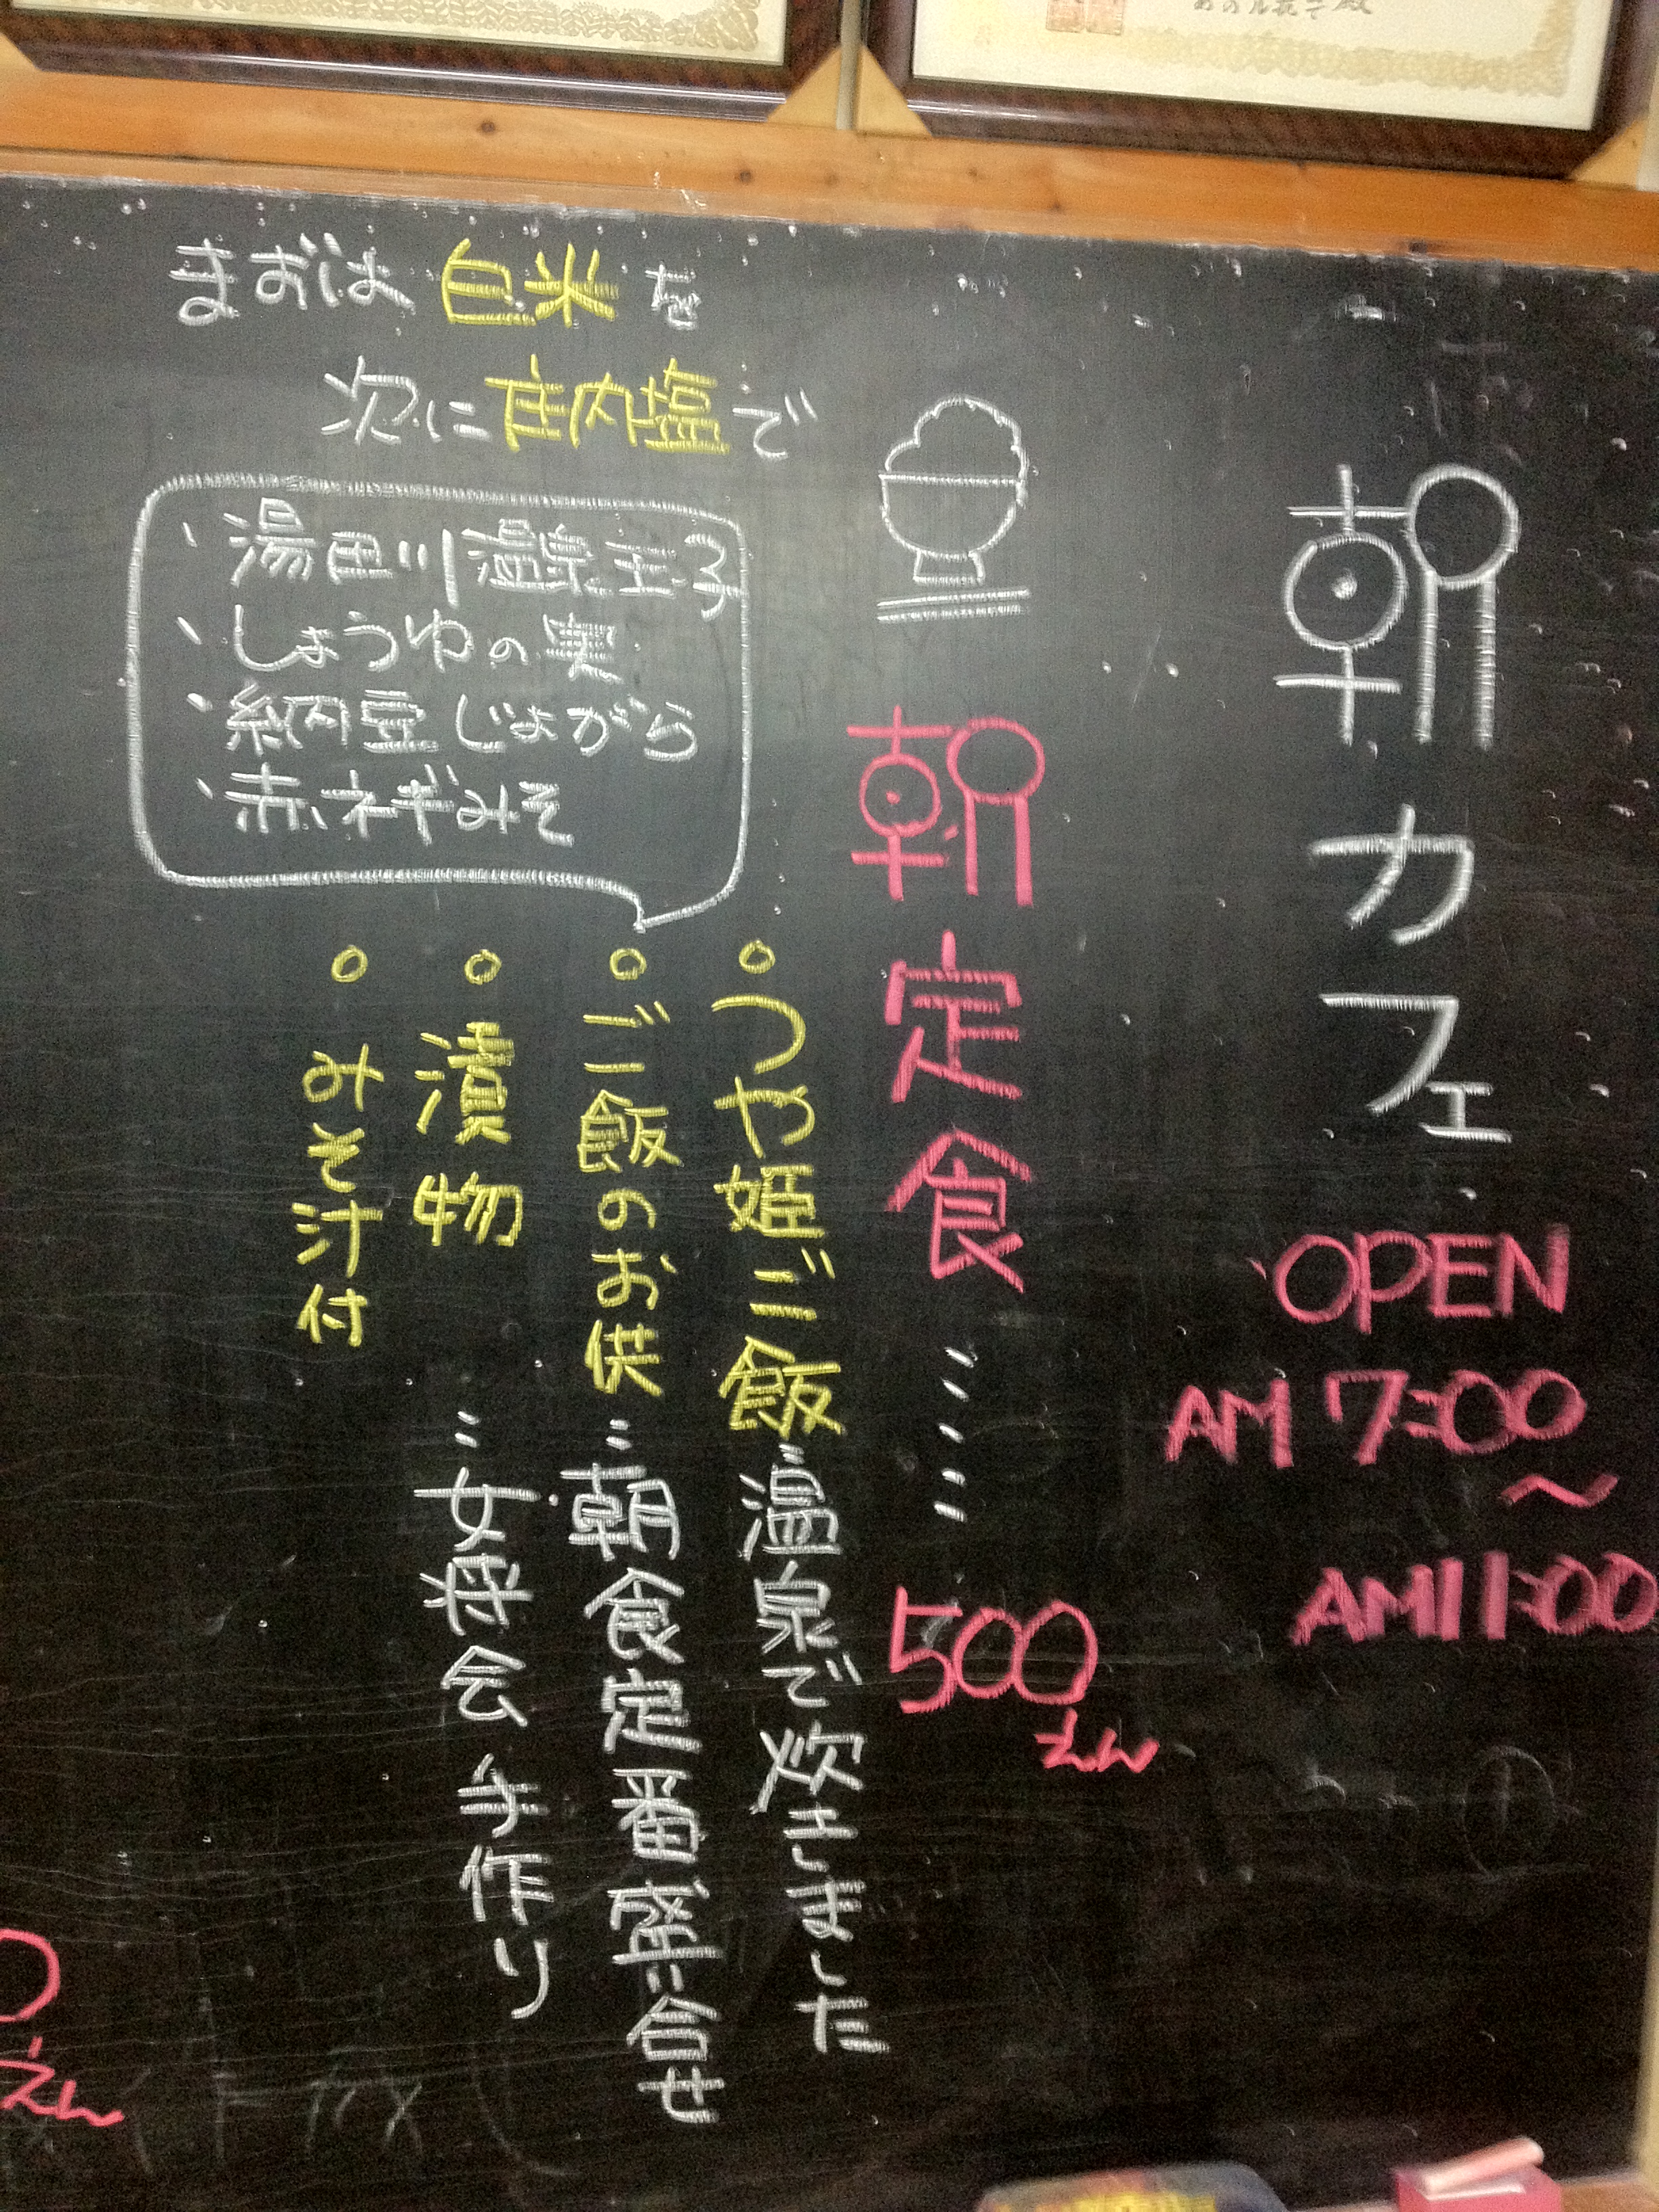 朝カフェ
OPEN
AM 7:00
〜
AM11:00
朝定食……500えん
つや姫ご飯…温泉で炊きました
ご飯のお供…朝食定番盛り合せ
漬物…女将会 手作り
みそ汁付
まずは白米を
次に庄内塩で
・湯田川温泉玉子
・しょうゆの実
・納豆じょがら
・赤ネギみそ
えん